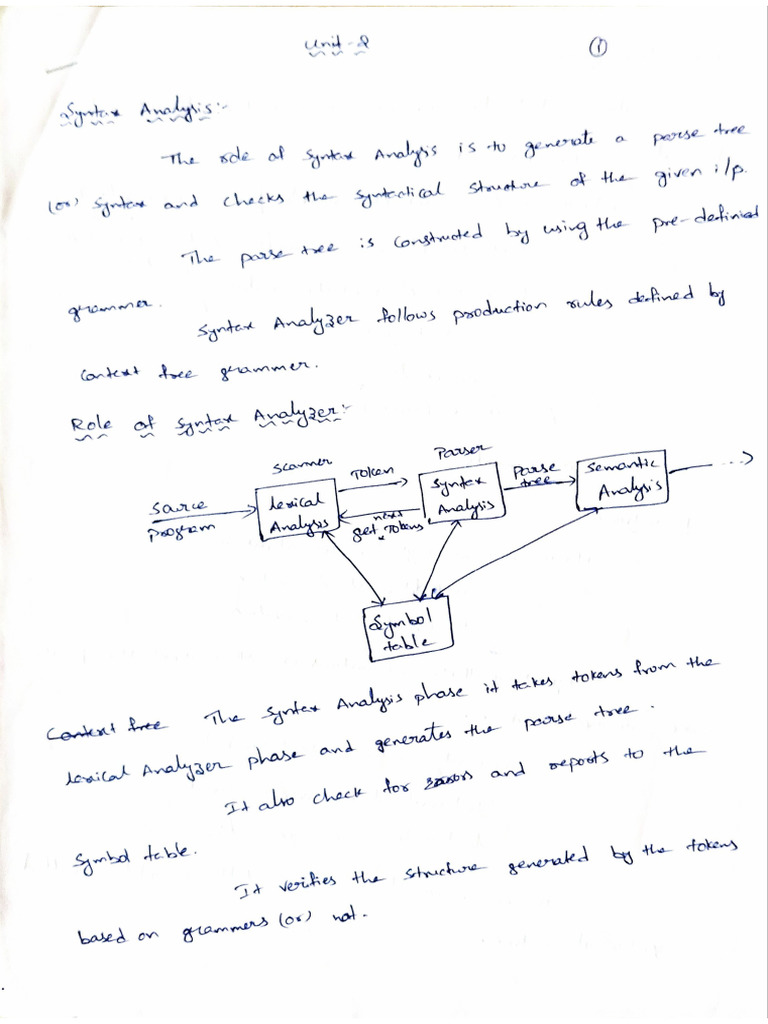 Unit-2
1
Syntax Analysis:-
The role of Syntax Analysis is to generate a parse tree
(or) Syntax and checks the syntactical structure of the given i/p.
The parse tree is constructed by using the pre-definied
grammer.
Syntax Analyzer follows production rules defined by
Context free grammer.
Role of Syntax Analyzer:-
Scanner
Token
Parser
Source
program
Lexical
Analysis
get next Tokens
Syntax
Analysis
Parse
tree
Semantic
Analysis
Symbol
table
Context free The Syntax Analysis phase it takes tokens from the
Lexical Analyzer phase and generates the parse tree.
It also check for errors and reports to the
Symbol table.
It verifies the structure generated by the tokens
based on grammers (or) not.